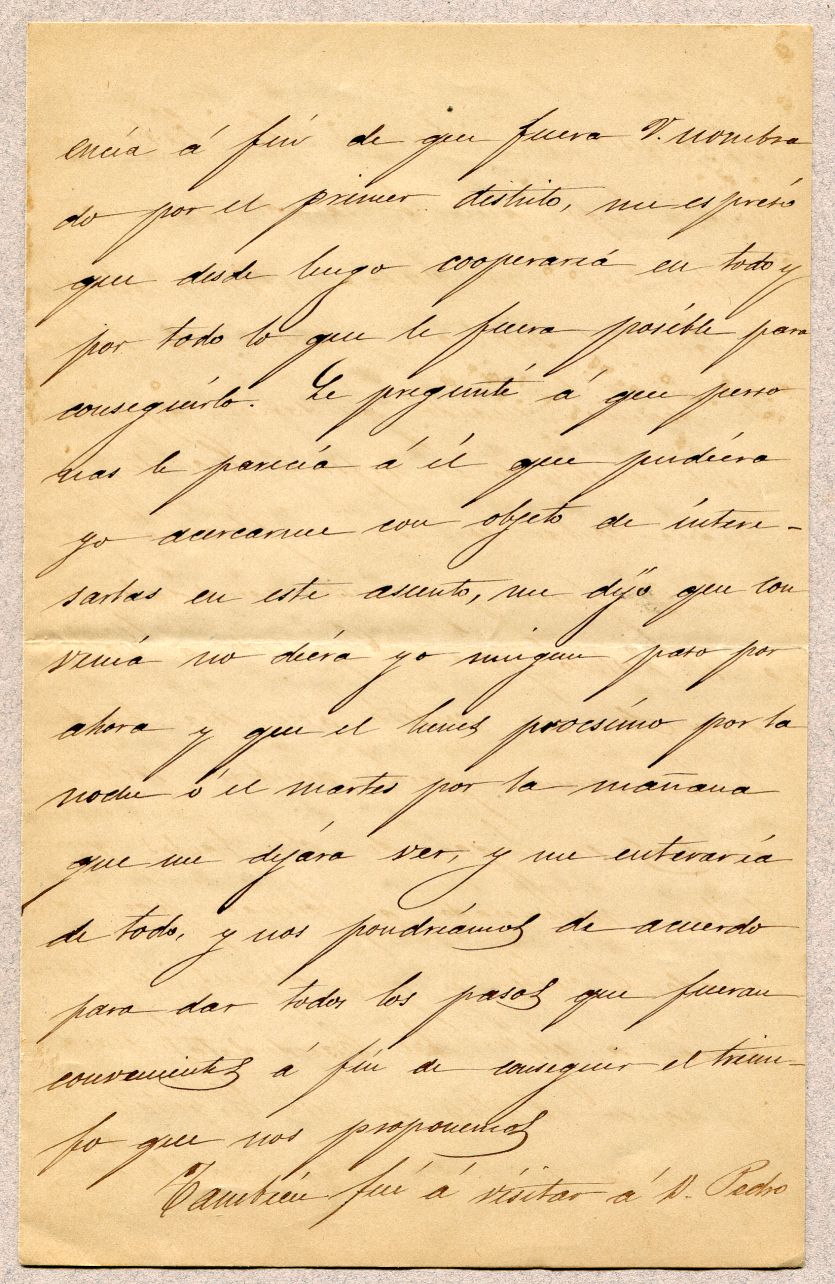 encia á fin de que fuera V. nombra
do por el primer distrito, me espresó
que desde luego cooperaria en todo y
por todo lo que le fuera posible para
conseguirlo. Le pregunté á que perso
nas le parecia á él que pudiera
yo acercarme con objeto de intere-
sarlas en este asunto, me dijo que con
venia no diera yo ningun paso por
ahora y que el lunes procsimo por la
noche ó el martes por la mañana
que me dejára ver, y me enteraria
de todo, y nos pondriamos de acuerdo
para dar todos los pasos que fueran
convenientes á fin de conseguir el triun-
fo que nos proponemos
Tambien fui á visitar á D. Pedro